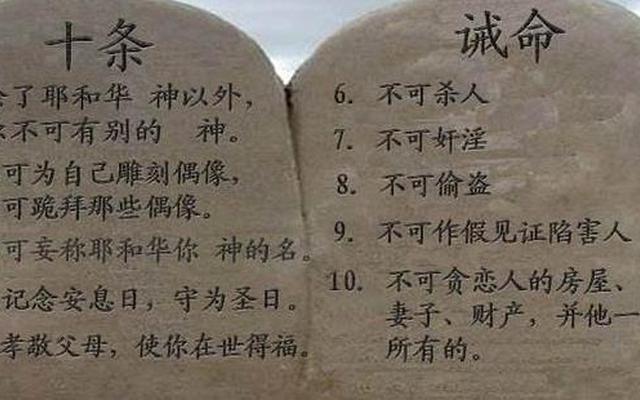 十条
了耶和华 神以外，
不可有别的 神。
可为自己雕刻偶像，
可跪拜那些偶像。
可妄称耶和华你 神的名。
记念安息日，守为圣日。
孝敬父母，使你在世得福。
诫命
6. 不可杀人
7. 不可奸淫
8. 不可偷盗
9. 不可作假见证陷害人
10. 不可贪恋人的房屋、
妻子、财产，并他一
所有的。